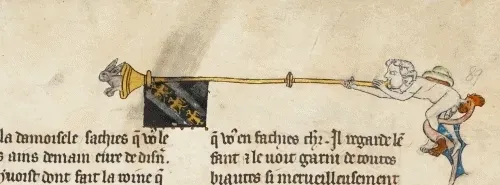 89
la damoisele sachies q̄ vo⁹ le
ains demain eure de disn̄.
dont fait la roine q̄
q̄ vo⁹ en sachies chr̄. Il regarde le
⁊ le uoit garni de toutes
biautes si merueilleusement